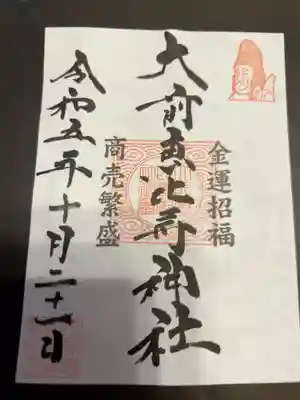 金運招福
大前恵比寿神社
商売繁盛
令和五年十月二十一日